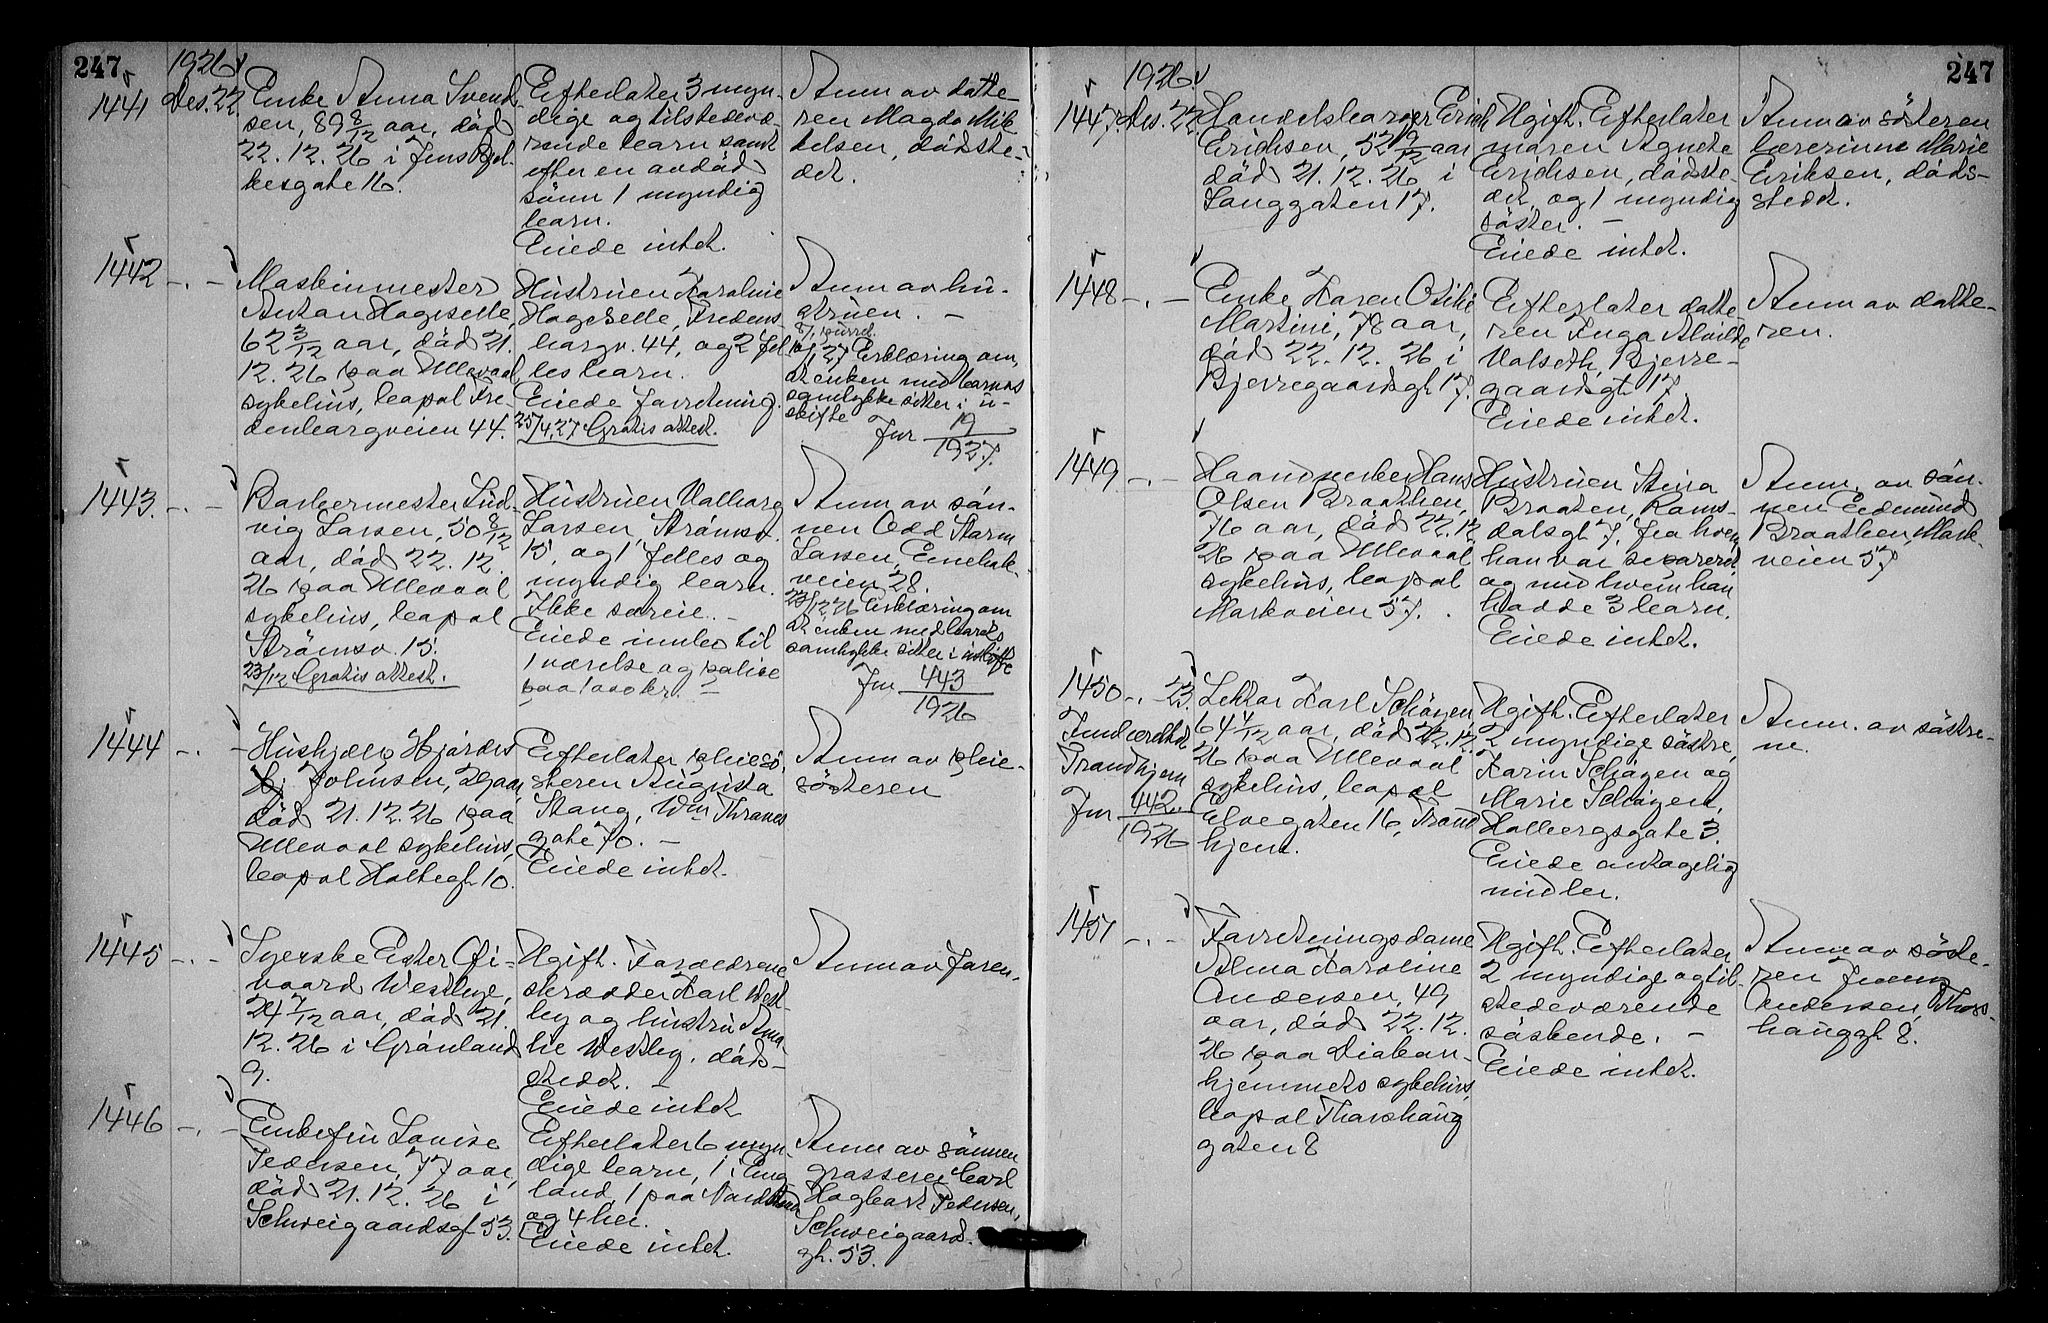 247
1926
1441
Des. 22
Enke Anna Svend-
sen, 89 8/12 aar, död
22. 12. 26 i Jens Bjel-
kesgate 16.
Efterlater 3 myn-
dige og tilstedevæ-
rende barn samt
efter en avdöd
sönn 1 myndig
barn.
Eiede intet.
Anm av datte
ren Magda Mik
kelsen, dödste-
det.
1442 -.-
Maskinmester
Anton Hageselle,
62 3/12 aar, död 21.
12. 26 paa Ullevaal
sykehus, bopal Fre-
densborgveien 44.
Hustruen Karoline
Hageselle, Fredens-
borgv. 44, og 2 fel
les barn.
Eiede forretning.
25/4 27 Gratis attest.
Anm av hu-
struen. -
27 Erklæring om,
at enken med barnas
samtykke sitter i u-
skifte
Jnr 19/1927.
1443. -.-
Barbermester Lud-
vig Larsen, 50 8/12
aar, död 22. 12.
26 paa Ullevaal
sykehus, bopal
Strömsv. 15.
23/12 Gratis attest.
Hustruen Valborg
Larsen, Strömsv.
15, og 1 felles og
myndig barn.
Ikke særeie. -
Eiede innbo til
1 værelse og
paa 1000 kr. -
Anm av sön-
nen Odd Storm
Larsen, Enebak-
veien 28.
23/12 26 Erklæring om
at enken med barnets
samtykke sitter i uskifte
Jnr 443/1926
1444 -.-
Hushjelp Hjördis
Johnsen, 29 aar,
död 21. 12. 26 paa
Ullevaal sykehus,
bopal Holtegt 10.
Efterlater pleiesö-
steren Augusta
Stang, Wm Thranes
gate 70. -
Eiede intet.
Anm av pleie-
sösteren
1445 -.-
Syerske Ester Öi-
vaard Westbye,
24 7/12 aar, död 21.
12. 26 i Grönland
9.
Ugift. Forældrene
skrædder Karl West
by og hustru Ama
lie Westby, död-
stedet. -
Eiede intet
Anm av faren-
1446 -.-
Enkefru Lovise
Pedersen, 77 aar,
död 21. 12. 26 i
Schweigaardsgt 53.
Efterlater 6 myn-
dige barn, 1 i Eng-
land, 1 paa Nordstrand
og 4 her.
Eiede intet.
Anm av sönnen
grosserer Carl
Hagbart Pedersen,
Schweigaards-
gt. 53.
247
1926
1447.
Des. 22.
Handelsborger Erich
Erichsen, 52 9/12 aar
död 21. 12. 26 i
Langgaten 17.
Ugift. Efterlater
moren Agnete
Erichsen, dödste-
det, og 1 myndig
söster. -
Eiede intet.
Anm av sösteren
lærerinne Marie
Eriksen, döds-
stedet.
1448 -.-
Enke Karen Otilie
Martini, 78 aar,
död 22. 12. 26 i
Bjerregaardsgt 17.
Efterlater datte-
ren Inga Alvilde
Valseth, Bjerre-
gaardsgt 17.
Eiede intet.
Anm av datte-
ren.
1449 -.-
Haandverker Hans
Olsen Braathen,
76 aar, död 22. 12.
26 paa Ullevaal
sykehus, bopal
Markveien 57.
Hustruen Stina
Braaten, Roms-
dalsgt 7, fra hvem
han var separeret
og med hvem han
hadde 3 barn.
Eiede intet.
Anm. av sön-
nen Edemund
Braathen, Mark-
veien 57
1450 -.- 23.
Jnr 442/1926
Lektor Karl Schögen,
64 4/12 aar, död 22. 12.
26 paa Ullevaal
sykehus, bopal
Elvegaten 16, Trond
hjem.
Ugift. Efterlater
2 myndige söstre,
Karin Schögen og
Marie Schögen,
Holbergsgate 3.
Eiede antagelig
midler.
Anm. av söstre-
ne.
1451 -.-
Forretningsdame
Alma Karoline
Andersen, 49
aar, död 22. 12.
26 paa Diakon-
hjemmets sykehus,
bopal Thorshaug
gaten 8
Ugift. Efterlater
2 myndige og til-
stedeværende
söskende. -
Eiede intet.
Anm av söste-
ren Jenny
Andersen, Thors-
hauggt 8.